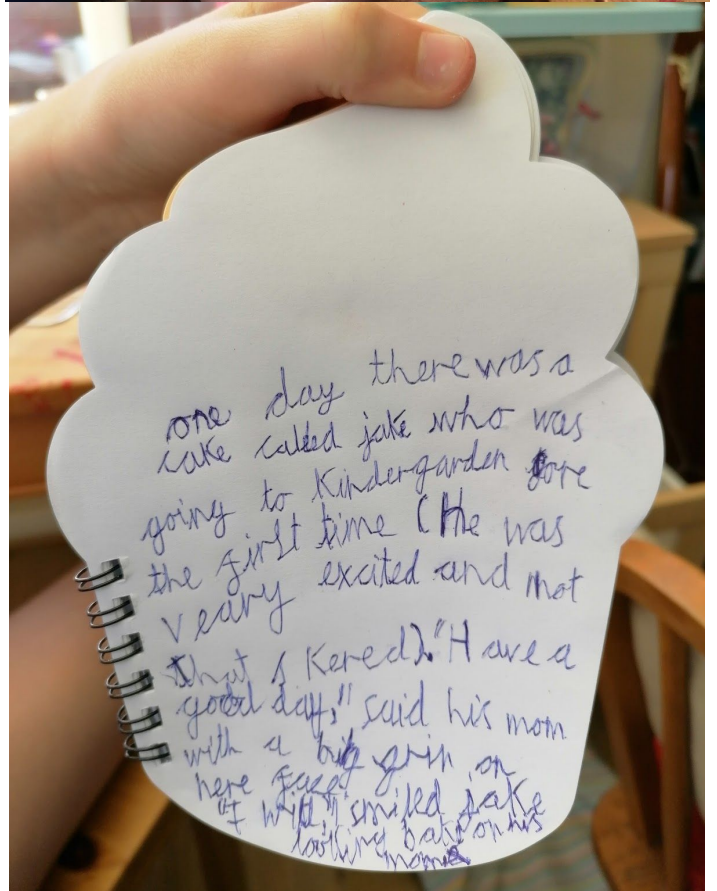 one day there was a
cake called jake who was
going to Kindergarden fore
the first time (He was
veary excited and not
that sKered). "Have a
good day," said his mom
with a big grin on
here face.
"I will," smiled jake
looking back on his
mom